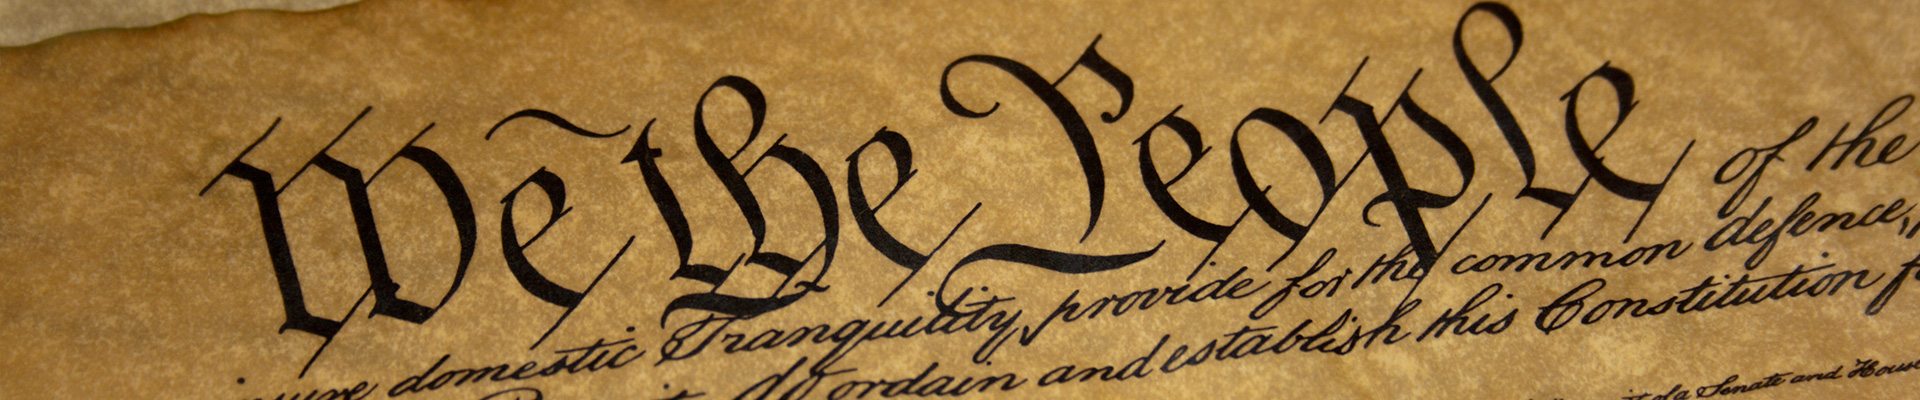 We the People of the
insure domestic Tranquility, provide for the common defence,
ordain and establish this Constitution
Senate and House